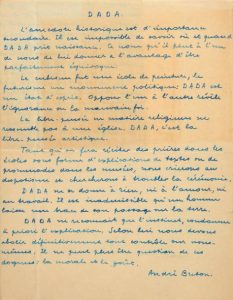 DADA.
L'anecdote historique est d'importance
secondaire. Il est impossible de savoir où et quand
DADA prit naissance. Ce nom qu'il plut à l'un
de nous de lui donner a l'avantage d'être
parfaitement équivoque.
Le cubisme fut une école de peinture, le
futurisme un mouvement politique : DADA est
un état d'esprit. Opposer l'un à l'autre révèle
l'ignorance ou la mauvaise foi.
La libre-pensée en matière religieuse ne
ressemble pas à une église. DADA, c'est la
libre-pensée artistique.
Tant qu'on fera réciter des prières dans les
écoles sous forme d'explications de textes ou de
promenades dans les musées, nous crierons au
despotisme et chercherons à troubler la cérémonie.
DADA ne se donne à rien, ni à l'amour, ni
au travail. Il est inadmissible qu'un homme
laisse une trace de son passage sur la terre.
DADA, ne reconnaissant que l'instinct, condamne
a priori l'explication. Selon lui nous devons
abolir définitivement tout contrôle sur nous-
mêmes. Il ne peut plus être question de ces
dogmes : la morale et le goût.
André Breton.